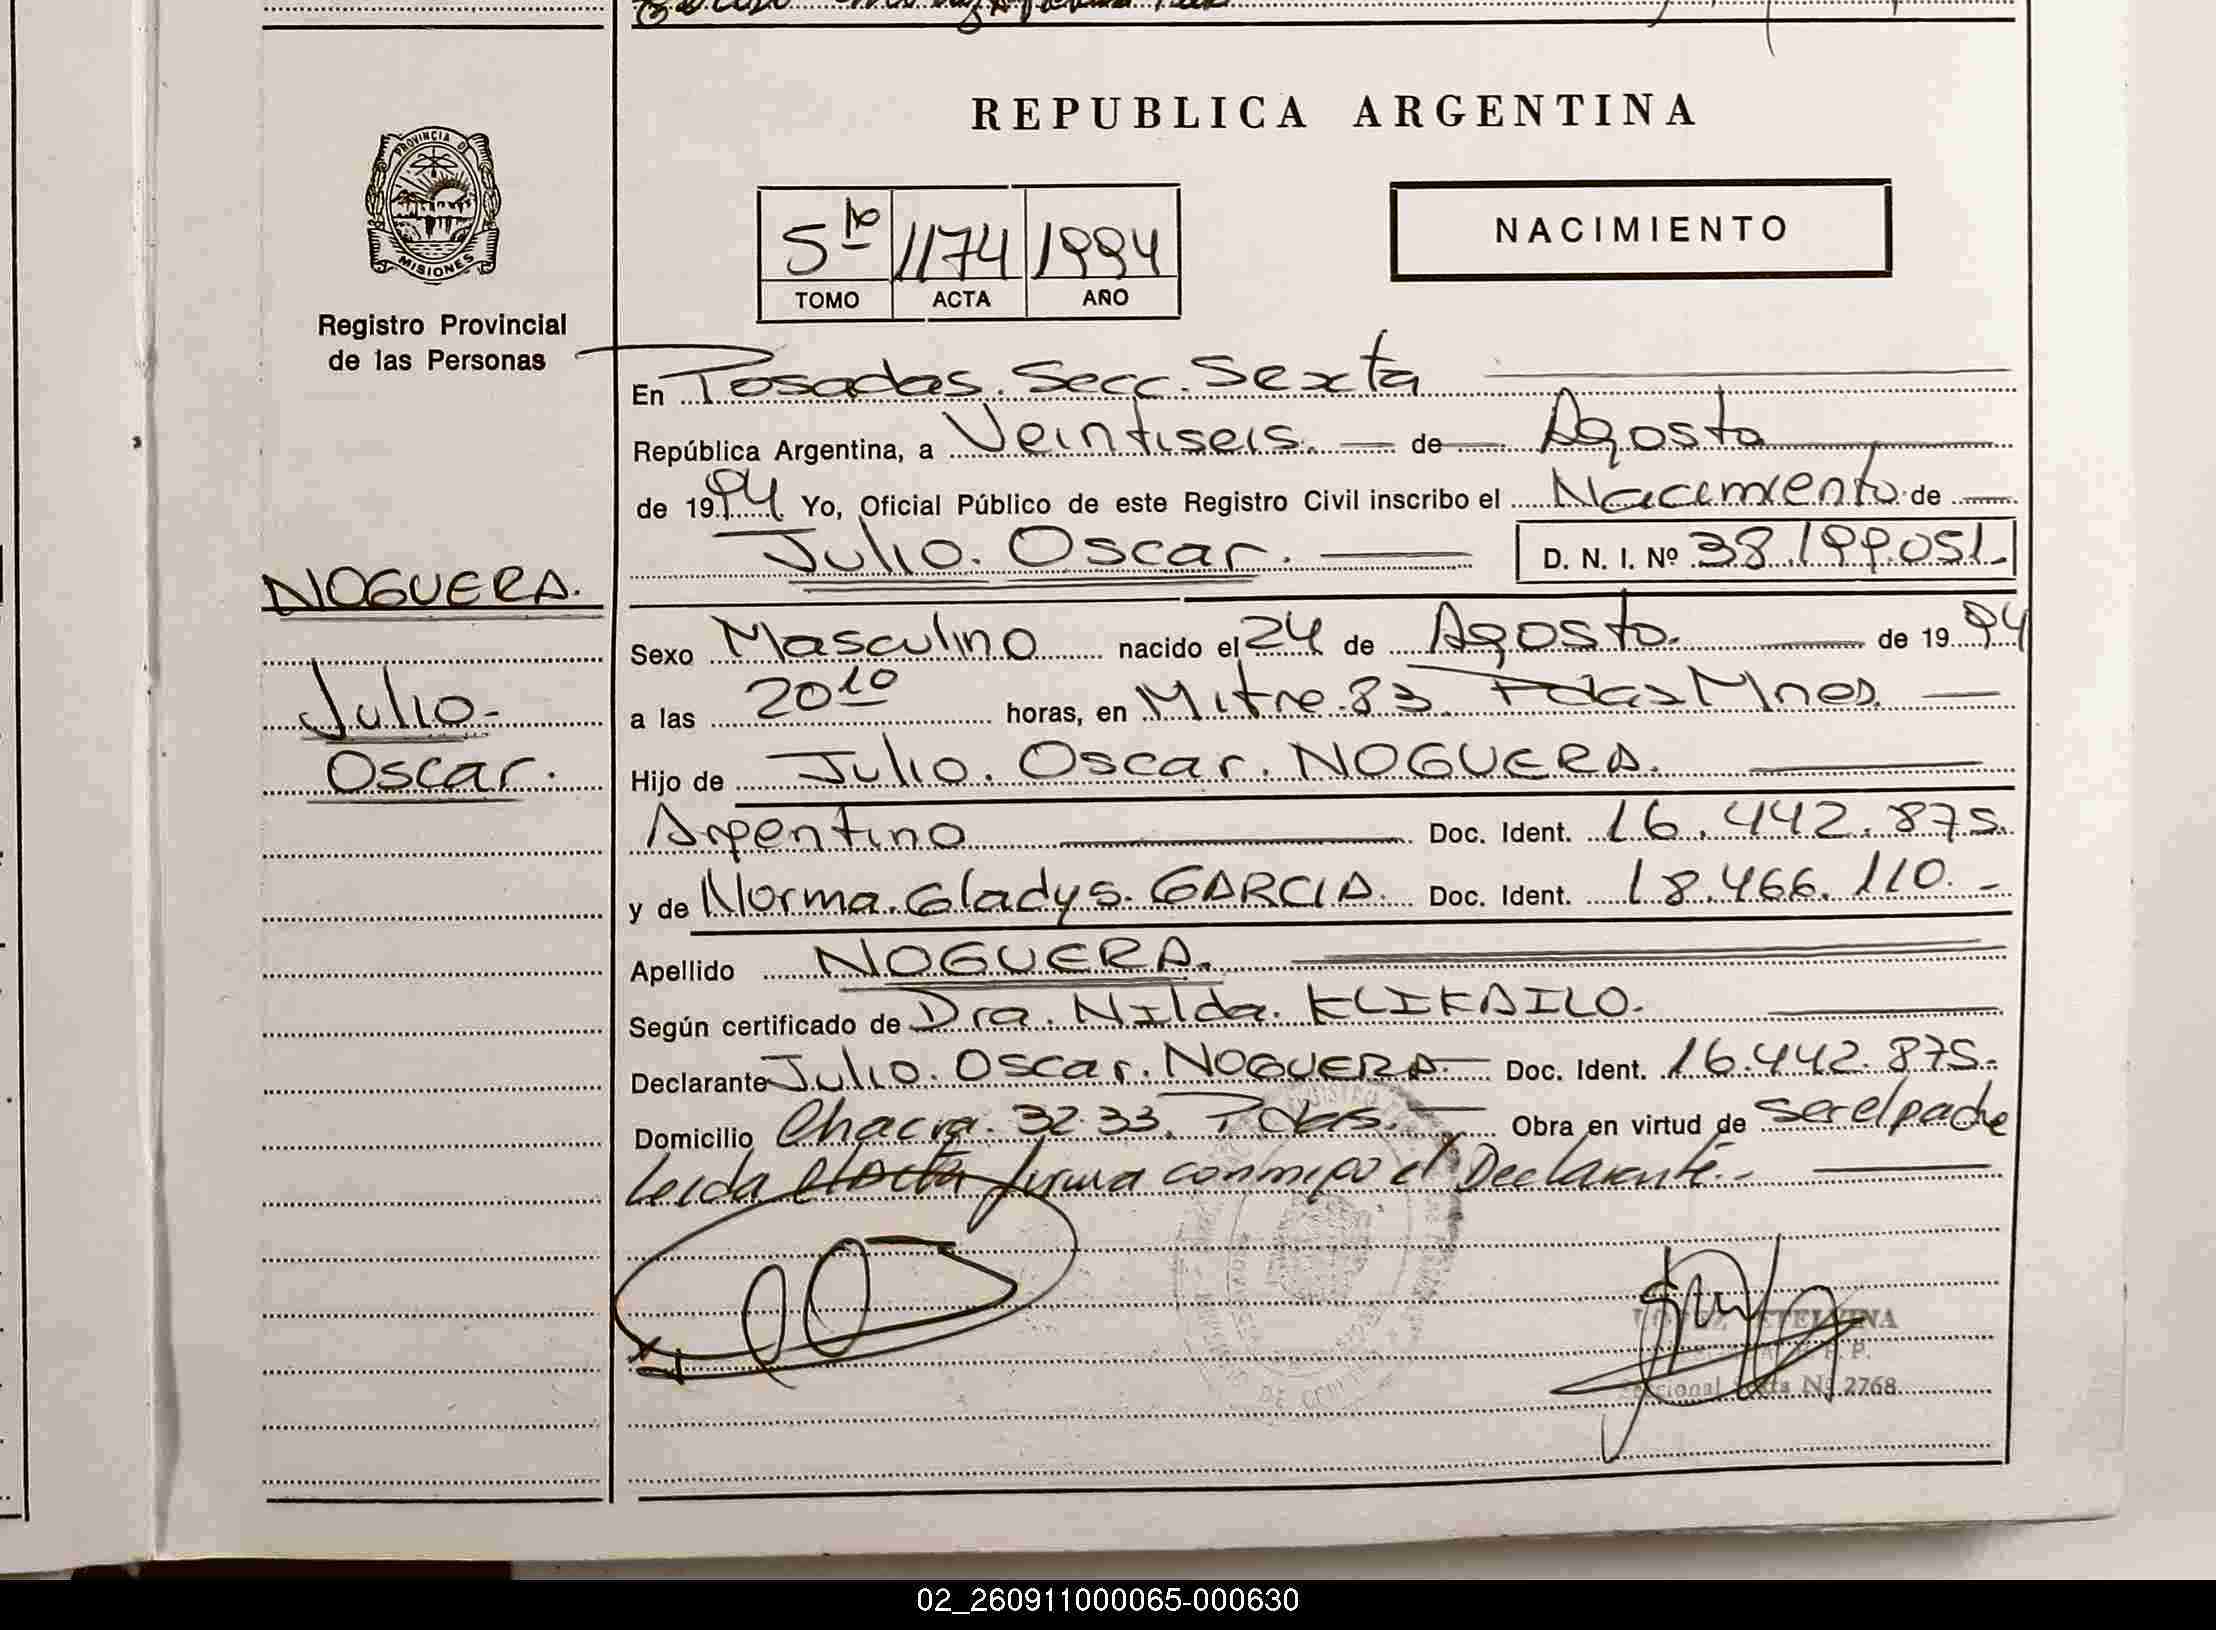 REPUBLICA ARGENTINA
PROVINCIA DE
MISIONES
Registro Provincial
de las Personas
5to 1174 1994
TOMO ACTA AÑO
NACIMIENTO
En Posadas. Secc. Sexta
República Argentina, a Veintiseis. de Agosto
de 1994 Yo, Oficial Público de este Registro Civil inscribo el Nacimiento de
Julio. Oscar. D. N. I. Nº 38.199.051.
NOGUERA.
Julio.
Oscar.
Sexo Masculino nacido el 24 de Agosto. de 1994
a las 20 10 horas, en Mitre.83. Pdas Mnes.
Hijo de Julio. Oscar. NOGUERA.
Argentino Doc. Ident. 16.442.875.
y de Norma. Gladys. GARCIA. Doc. Ident. 18.466.110.-
Apellido NOGUERA.
Según certificado de Dra. Nilda. KLIKAILO.
Declarante Julio. Oscar. NOGUERA.- Doc. Ident. 16.442.875.-
Domicilio Chacra. 32.33. Pdas. Obra en virtud de ser el padre
Leida el Acta firma conmigo el Declarante.-
Nº 2768
02_260911000065-000630